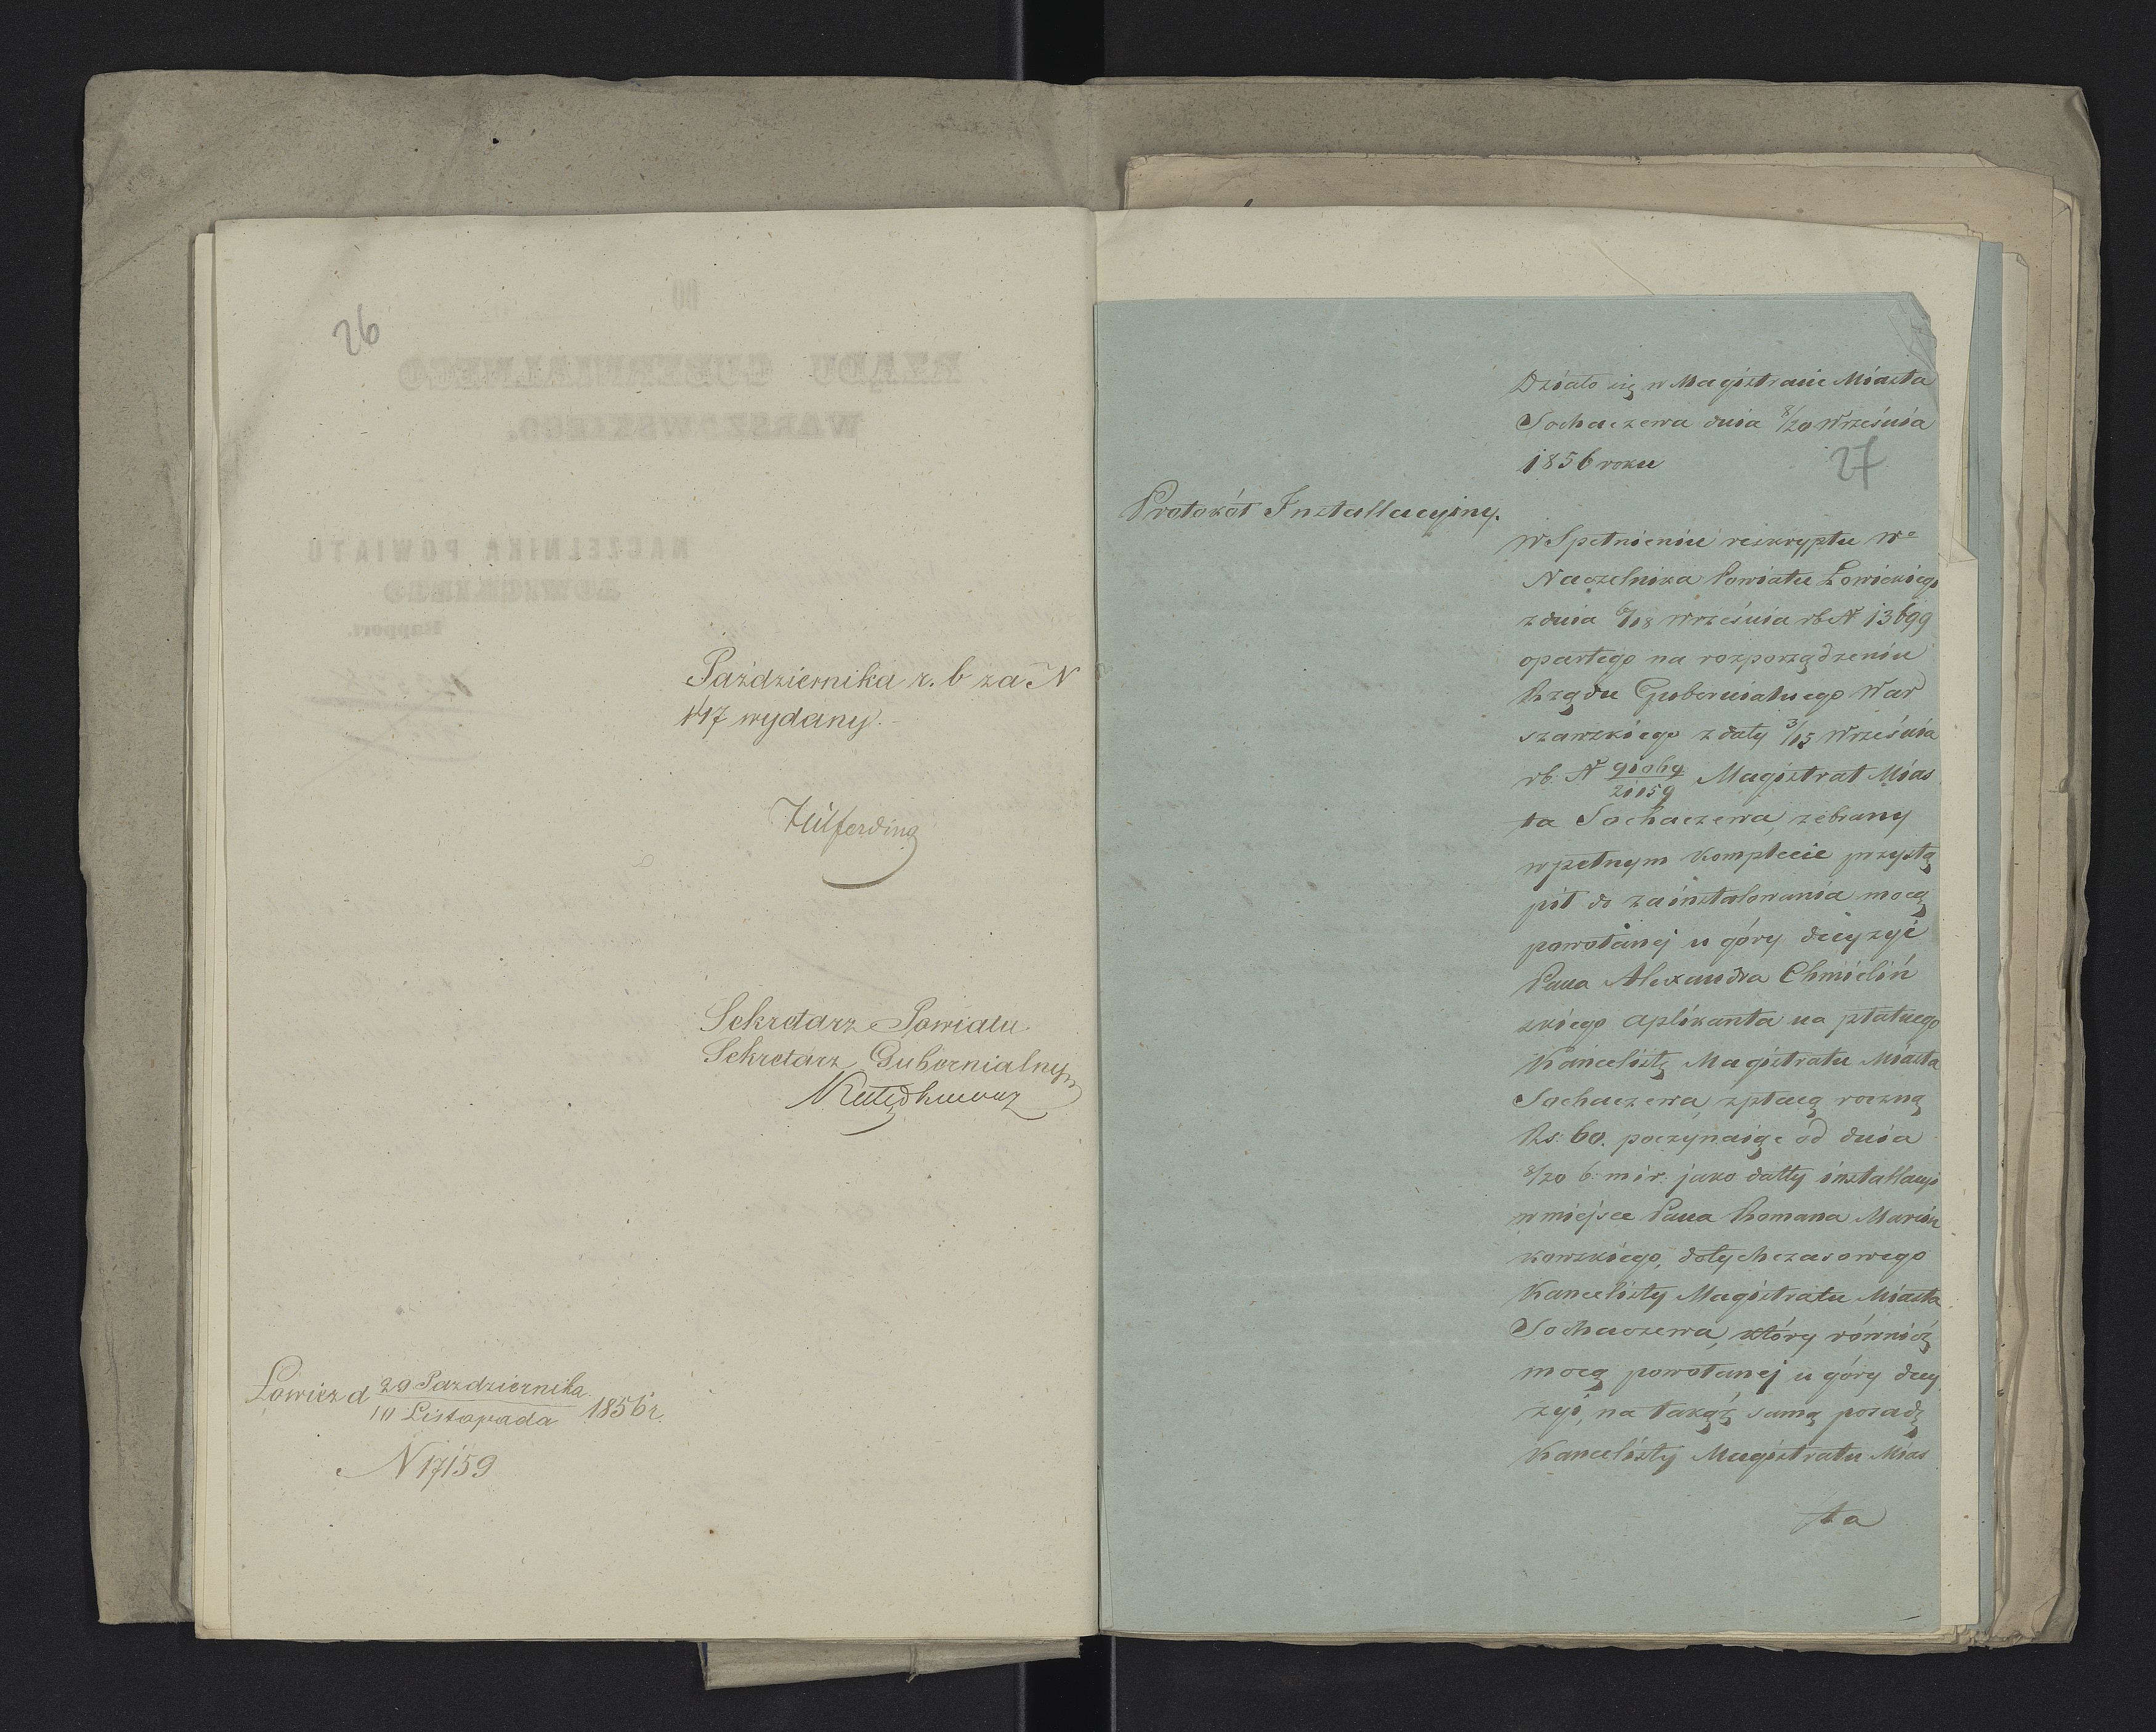 26
Października r. b za N
117 wydany.
Hilferding
Sekretarz Powiatu
Sekretarz Gubernialny
Łowicz d 29 Października / 10 Listopada 1856 r.
N 17159
27
Działo się w Magistracie Miasta
Sochaczewa dnia 8/20 Września
1856 roku
Protokół Instalacyjny.
W Spełnieniu reskryptu Wo
Naczelnika Powiatu Łowickiego
z dnia 6/18 września rb N 13699
opartego na rozporządzeniu
Rządu Gubernialnego War
szawskiego z daty 3/15 Września
rb. N 91069/21159 Magistrat Mias
ta Sochaczewa, zebrany
w pełnym komplecie przystą
pił do zainstalowania mocą
powołanej u góry decyzyi
Pana Alexandra Chmieliń
skiego aplikanta na płatnego
Kancelistę Magistratu Miasta
Sochaczewa, z płacą roczną
Rs: 60. poczynaiąc od dnia
8/20 b. m i r. jako datty installacyi
w miejsce Pana Romana Marcin
kowskiego, dotychczasowego
Kancelisty Magistratu Miasta
Sochaczewa, który również
mocą powołanej u góry decy
zyi, na takąż samą posadę
Kancelisty Magistratu Mias
ta